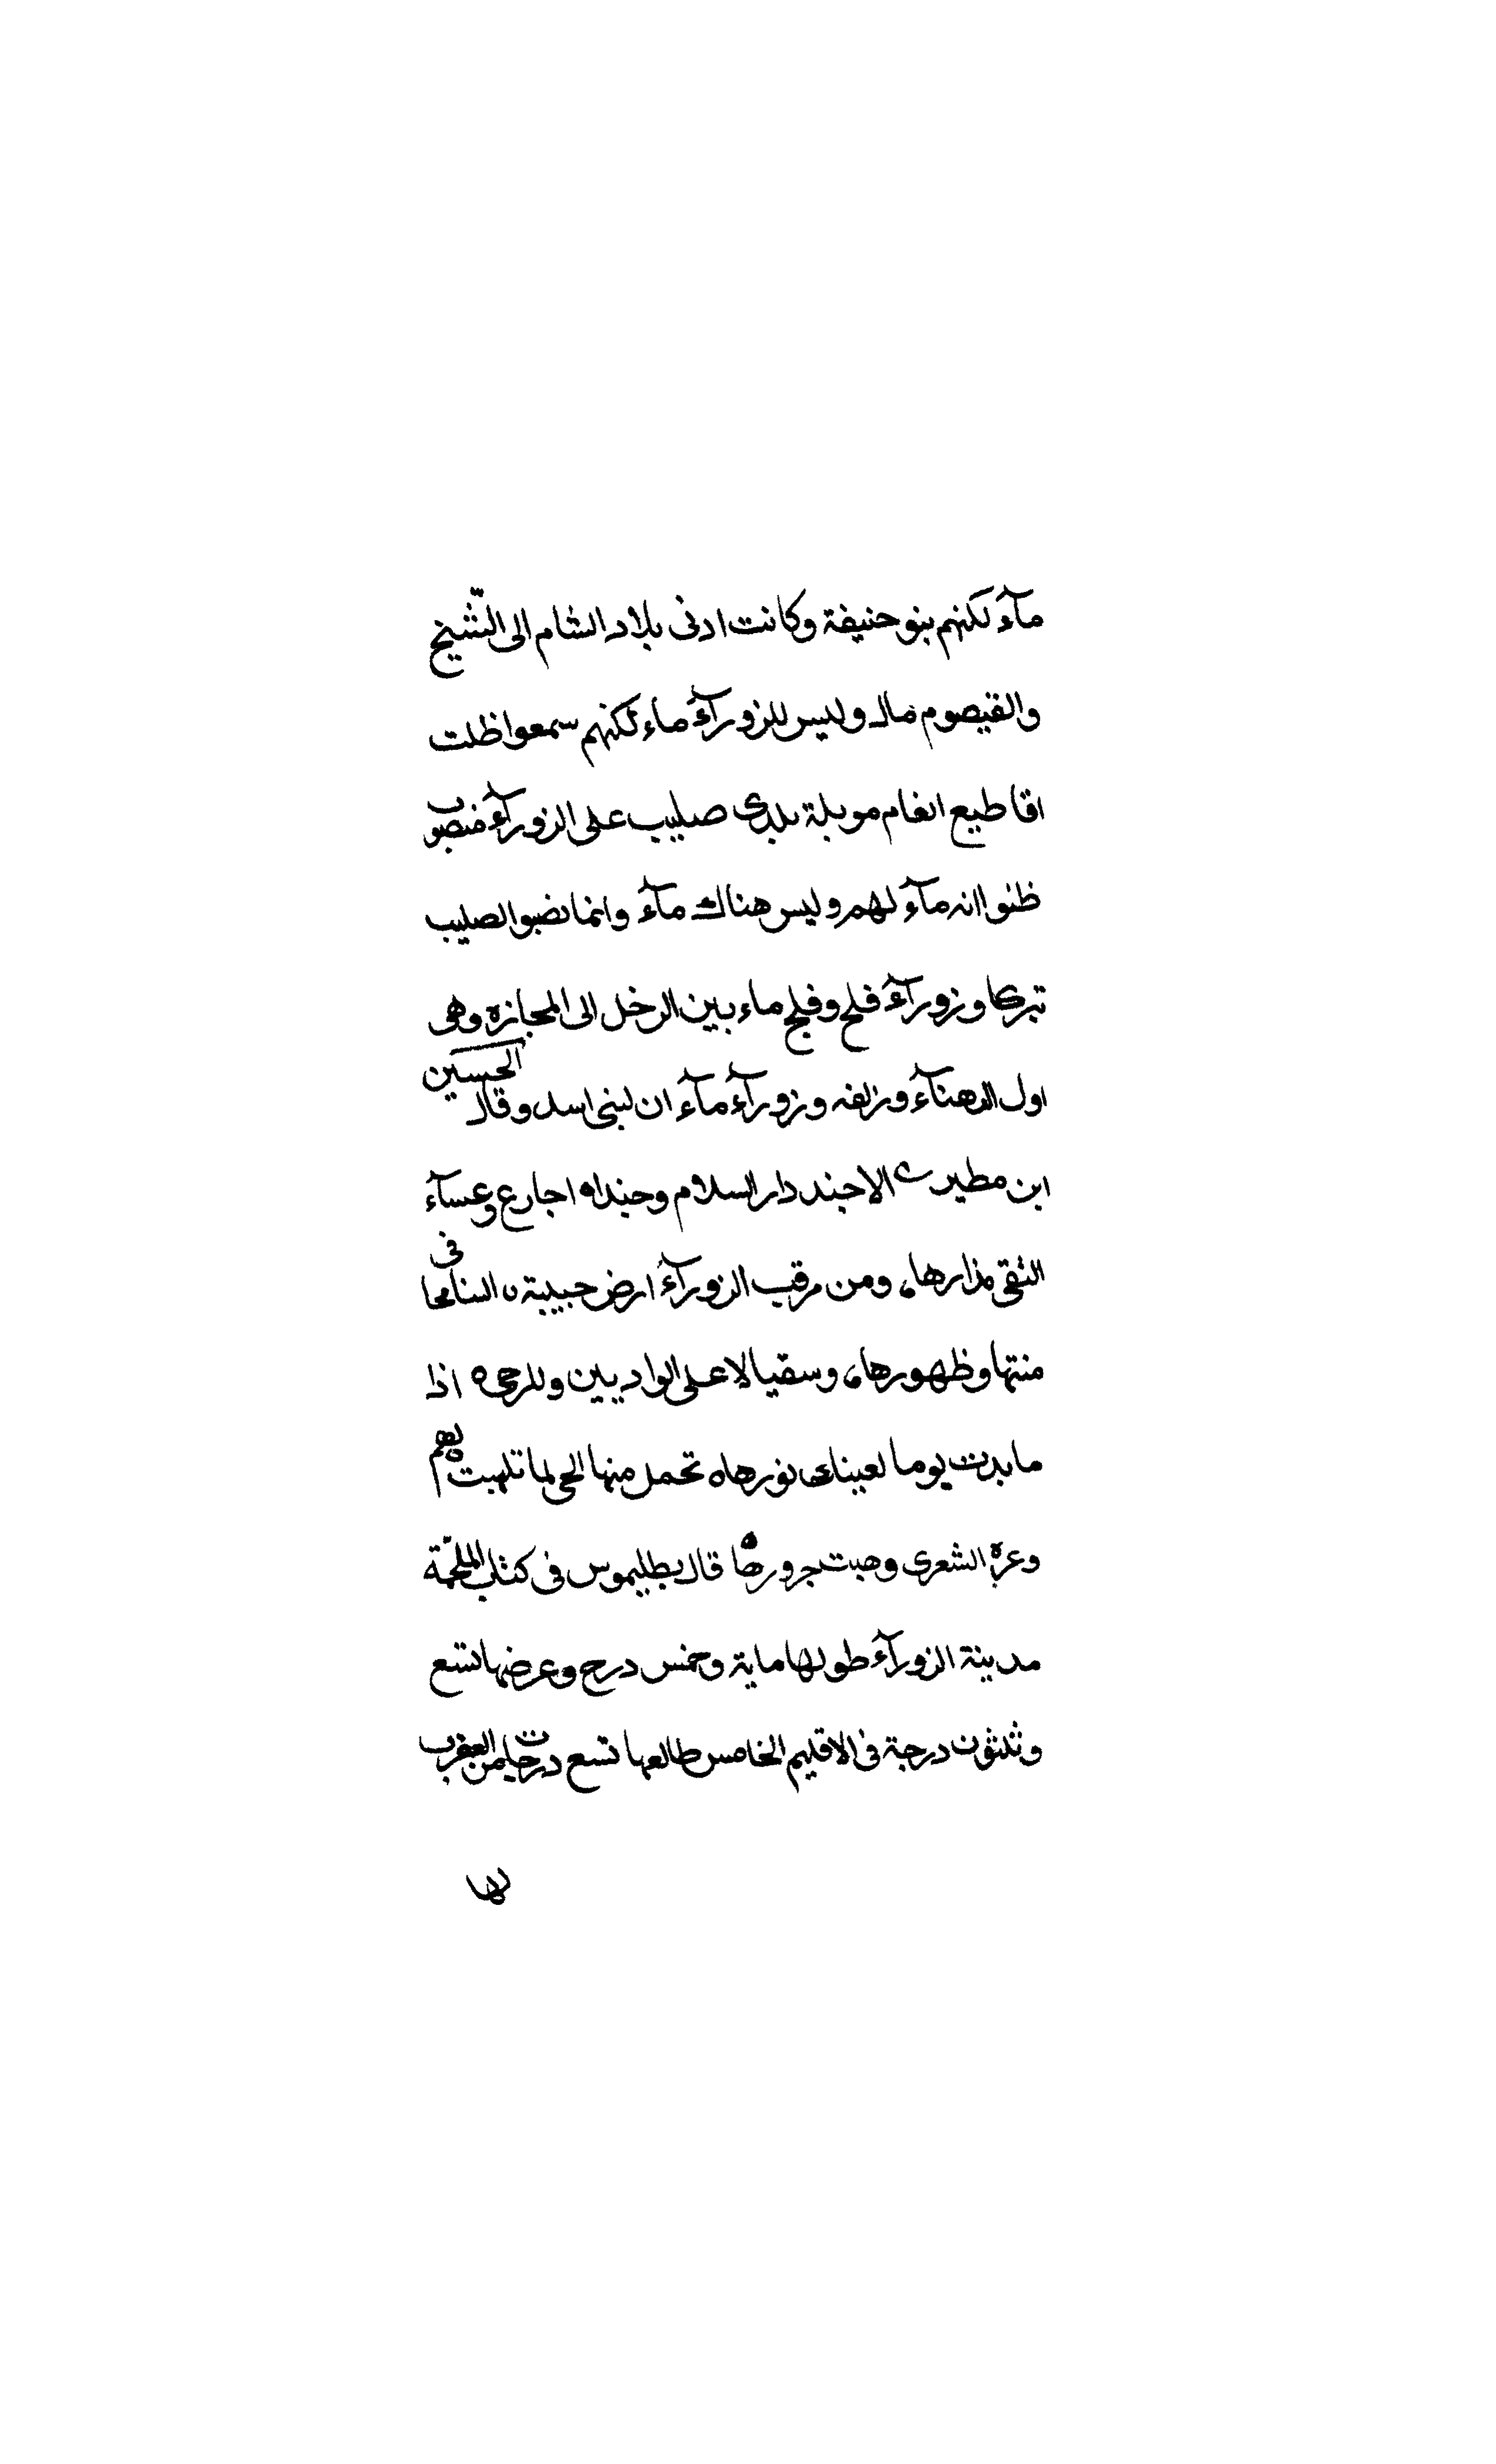 مآء لكنهم بنو حنيفة وكانت ادنى بلاد الشام الى الشيخ
والقيصوم قال وليس للزورآء ماء لكنهم سمعوا ظلت
اقاطيع انعام موبلة بلدى صليب على الزورآء منصوب
ظنوا انه مآء لهم وليس هناك مآء وانما نصبوا الصليب
تبركا وزورآء فلح وفلج ماء بين الرخل الى المجازة وهى
اول الدهنآء وزلفه وزورآء مآء ان لبنى اسد وقال الحسين
ابن مطير الا حبذا دار السلام وحبذا اجارع وعسآء
النقى مذارها ومن مرقب الزورآء ارض حبيبة النا محانى
منتها وظهورها وسقيا لا على الواديين وللرحى اذا
ما بدت يوما لعيناى نورها تحمل منها الحى لما تلهبت لهم
وعرة الشعرى وهبت حرورها قال بطليموس فى كتاب الملحمة
مدينة الزورآء طولها ماية وخمس درج وعرضها تسع
وثلثون درجة فى الاقليم الخامس طالعها تسع درجات من العقرب
لها